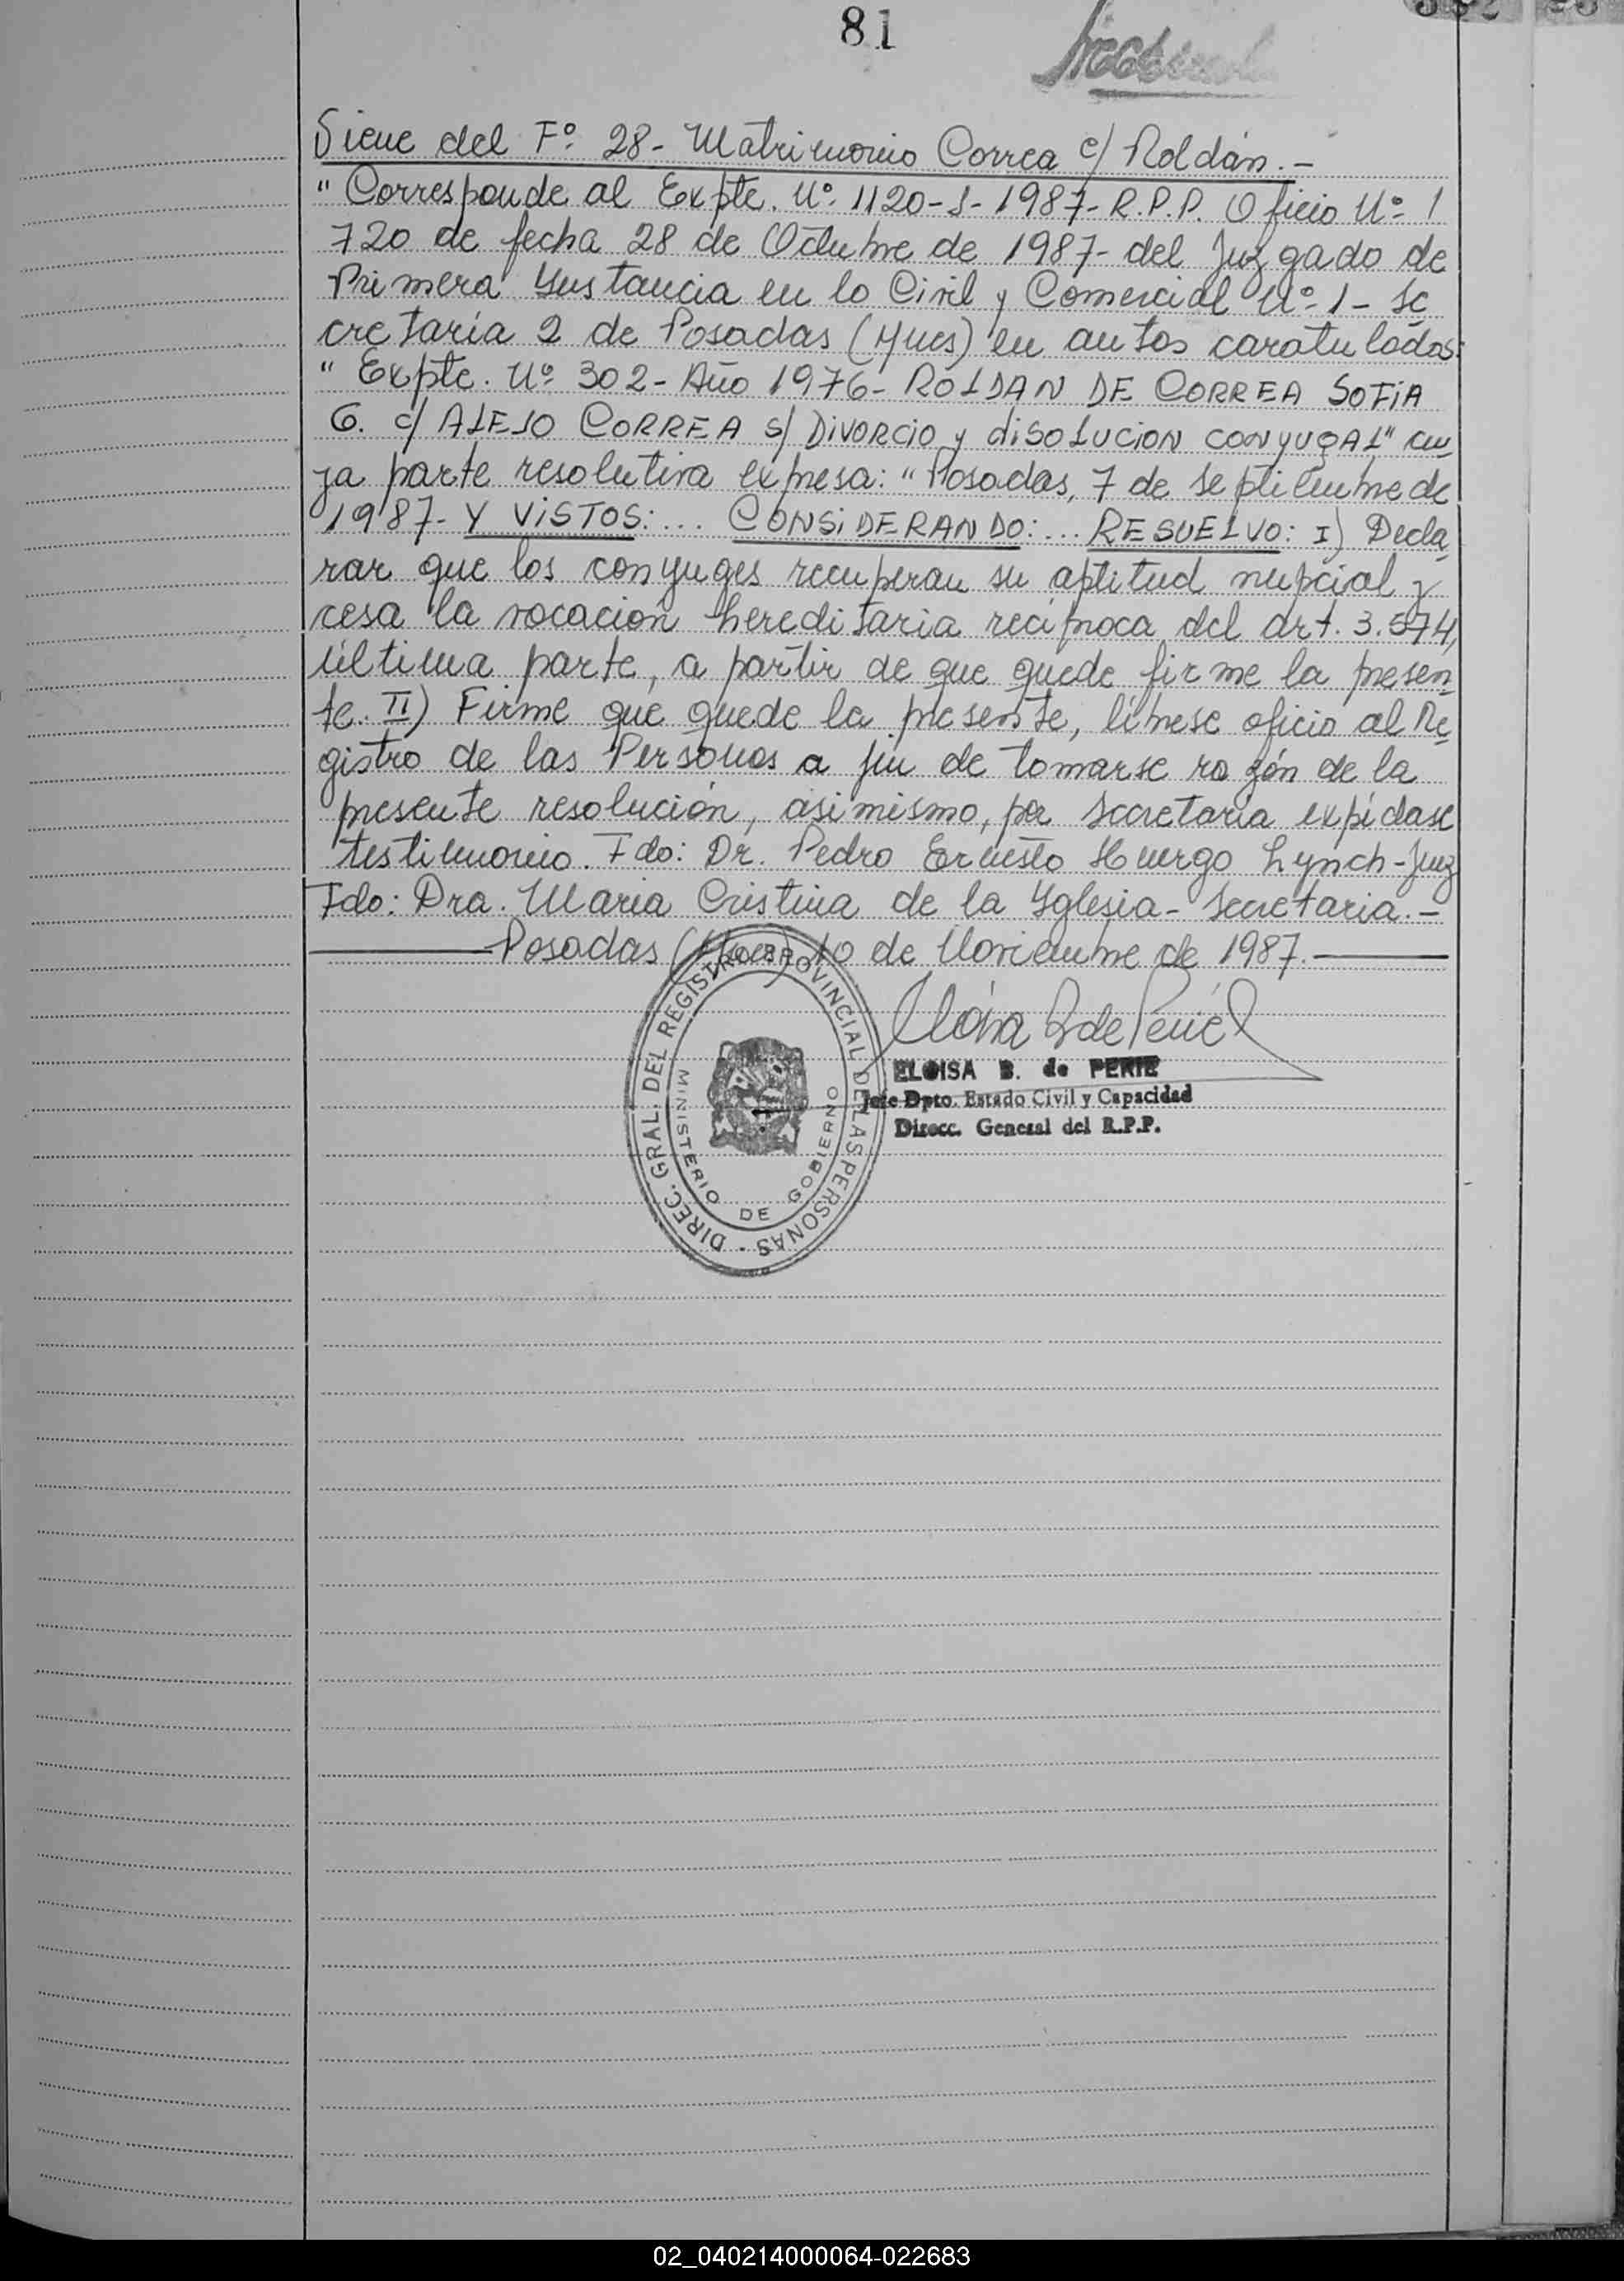 81
Viene del Fº. 28- Matrimonio Correa c/ Roldán.-
"Corresponde al Expte. Nº. 1120-S-1987- R.P.P. Oficio Nº 1
720 de fecha 28 de Octubre de 1987- del Juzgado de
Primera Instancia en lo Civil y Comercial Nº 1- Se
cretaría 2 de Posadas (Mnes) en autos caratulados:
"Expte. Nº 302- Año 1976- ROLDAN DE CORREA SOFÍA
G. c/ ALEJO CORREA s/ DIVORCIO y diSOLUCION CONYUGAL" cu
ya parte resolutiva expresa: "Posadas, 7 de septiembre de
1987- Y VISTOS:... CONSIDERANDO:... RESUELVO: I) Decla
rar que los conyuges recuperan su aptitud nupcial y
cesa la vocación hereditaria recíproca del Art. 3.574,
última parte, a partir de que quede firme la presen
te. II) Firme que quede la presente, líbrese oficio al Re
gistro de las Personas a fin de tomarse razón de la
presente resolución, asimismo, por secretaría expídase
testimonio. Fdo: Dr. Pedro Ernesto Huergo Lynch-Juez
Fdo: Dra. Maria Cristina de la Yglesia- Secretaria.-
Posadas (Mnes) 10 de Noviembre de 1987.-
DIREC. GRAL. DEL REGISTRO PROVINCIAL DE LAS PERSONAS -
MINISTERIO DE GOBIERNO
ELOISA B. de PERIE
Jefe Dpto. Estado Civil y Capacidad
Direcc. General del R.P.P.
02_040214000064-022683